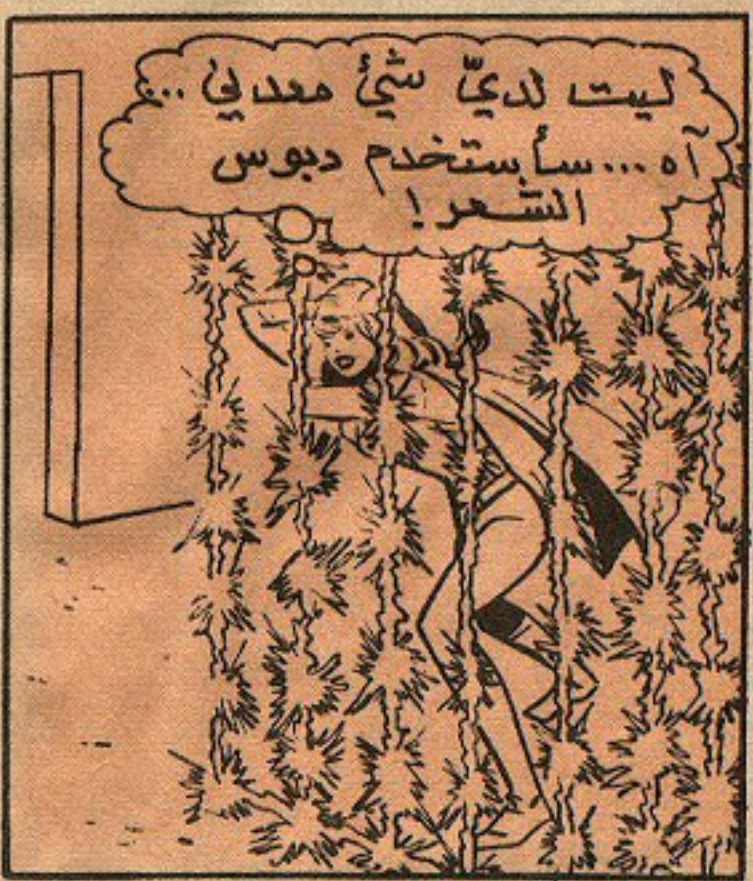 ليت لديّ شيْ معدني ...
آه ... سأستخدم دبوس
الشعر !